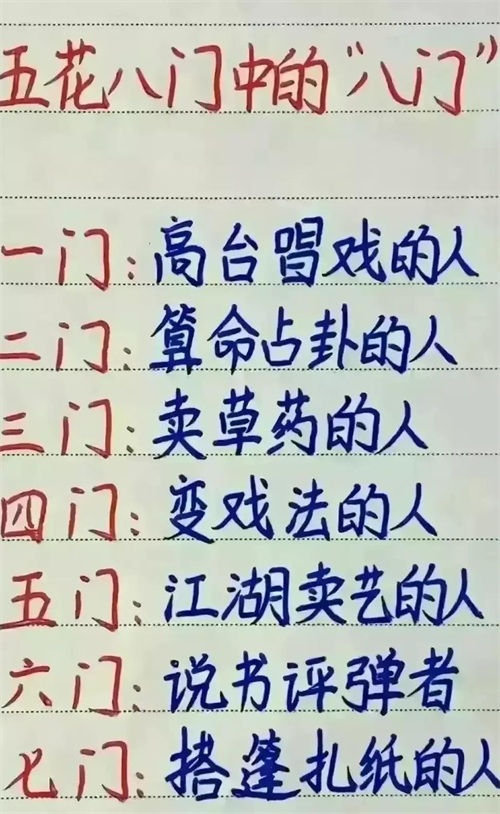 五花八门中的“八门”
一门:高台唱戏的人
二门:算命占卦的人
三门:卖草药的人
四门:变戏法的人
五门:江湖卖艺的人
六门:说书评弹者
七门:搭篷扎纸的人